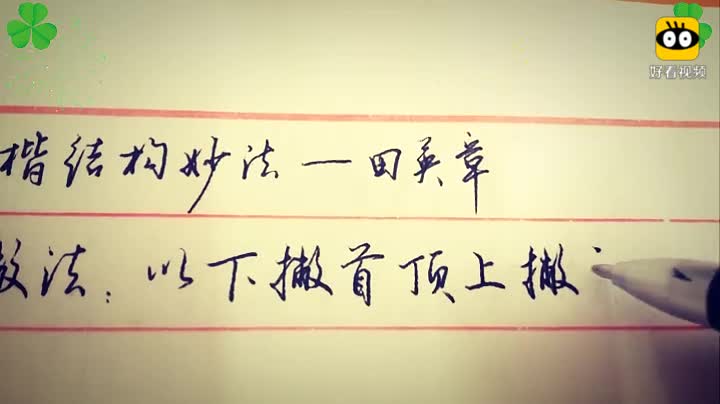 好看视频
楷结构妙法一田英章
法：以下撇首顶上撇